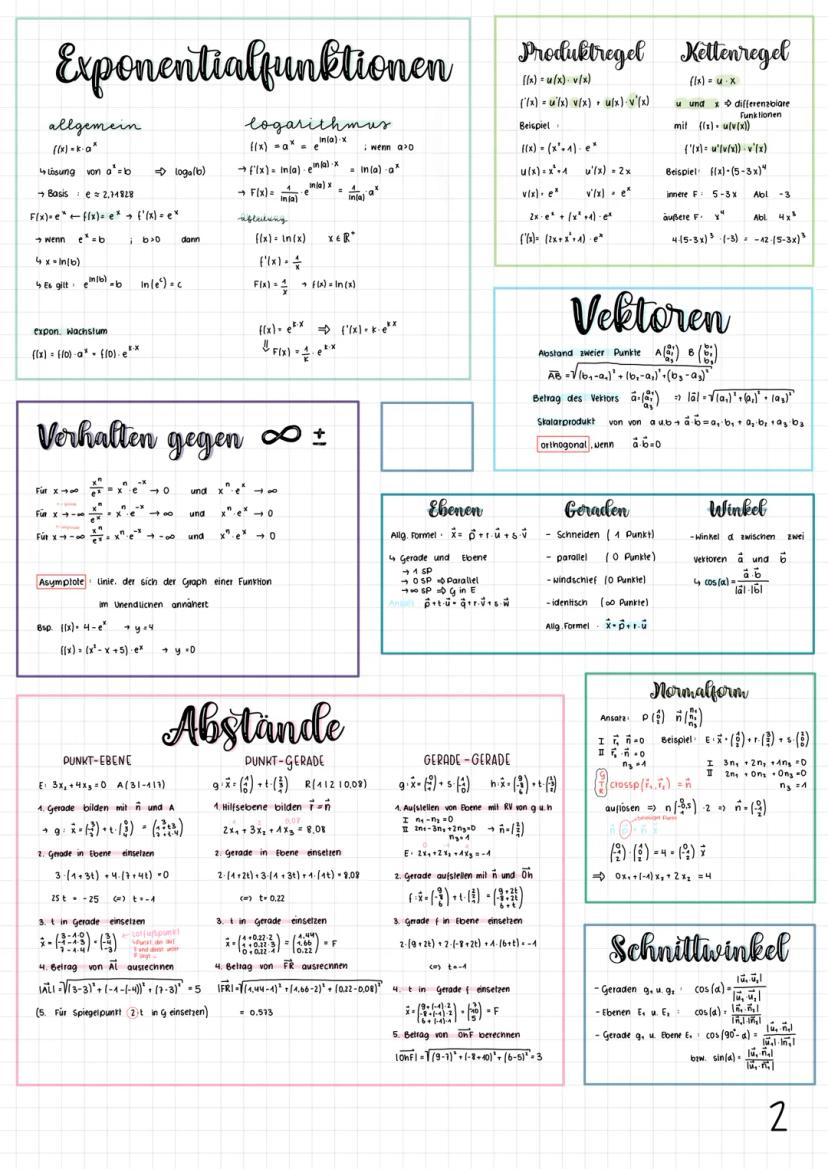 Exponentialfunktionen
allgemein
f(x) = k · aˣ
↳ lösung von aˣ = b ⇒ logₐ(b)
→ Basis : e ≈ 2,71828
F(x) = eˣ ← f(x) = eˣ → f'(x) = eˣ
→ wenn eˣ = b ; b>0 dann
↳ x = ln(b)
↳ Es gilt : e^ln(b) = b ln(eᶜ) = c
expon. Wachstum
f(x) = f(0) · aˣ = f(0) · e^k·x
logarithmus
f(x) = aˣ = e^ln(a)·x ; wenn a>0
→ f'(x) = ln(a) · e^ln(a)·x = ln(a) · aˣ
→ F(x) = 1/ln(a) · e^ln(a)·x = 1/ln(a) · aˣ
ableitung
f(x) = ln(x) x ∈ ℝ⁺
f'(x) = 1/x
F(x) = 1/x → f(x) = ln(x)
f(x) = e^k·x ⇒ f'(x) = k · e^k·x
⇓ F(x) = 1/k · e^k·x
Produktregel
f(x) = u(x) · v(x)
f'(x) = u'(x) v(x) + u(x) · v'(x)
Beispiel :
f(x) = (x² + 1) · eˣ
u(x) = x² + 1 u'(x) = 2x
v(x) = eˣ v'(x) = eˣ
2x · eˣ + (x² + 1) · eˣ
f'(x) = (2x + x² + 1) · eˣ
Kettenregel
f(x) = u · x
u und x ⇒ differenzbare
Funktionen
mit f(x) = u(v(x))
f'(x) = u'(v(x)) · v'(x)
Beispiel : f(x) = (5-3x)⁴
innere F: 5-3x Abl -3
äußere F: x⁴ Abl. 4x³
4 · (5-3x)³ · (-3) = -12 · (5-3x)³
Vektoren
Abstand zweier Punkte A(a₁ a₂ a₃) B(b₁ b₂ b₃)
AB = √(b₁-a₁)² + (b₂-a₂)² + (b₃-a₃)²
Betrag des Vektors a⃗ = (a₁ a₂ a₃) ⇒ |a⃗| = √(a₁)² + (a₂)² + (a₃)²
Skalarprodukt von von a u.b → a⃗·b⃗ = a₁·b₁ + a₂·b₂ + a₃·b₃
orthogonal, wenn a⃗·b⃗ = 0
Verhalten gegen ∞ ±
Für x → ∞ xⁿ/eˣ = xⁿ · e⁻ˣ → 0 und xⁿ · eˣ → ∞
Für x → -∞ xⁿ/eˣ = xⁿ · e⁻ˣ → ∞ und xⁿ · eˣ → 0
Für x → -∞ xⁿ/eˣ = xⁿ · e⁻ˣ → -∞ und xⁿ · eˣ → 0
Asymptote : Linie, der sich der Graph einer Funktion
im Unendlichen annähert
Bsp. f(x) = 4 - eˣ → y = 4
f(x) = (x² - x + 5) · eˣ → y = 0
Ebenen
Allg. Formel : x⃗ = p⃗ + r·u⃗ + s·v⃗
↳ Gerade und Ebene
→ 1 SP
→ 0 SP ⇒ Parallel
→ ∞ SP ⇒ G in E
Ansatz: p⃗ + t·u⃗ = q⃗ + r·v⃗ + s·w⃗
Geraden
- Schneiden (1 Punkt)
- parallel (0 Punkte)
- windschief (0 Punkte)
- identisch (∞ Punkte)
Allg. Formel : x⃗ = p⃗ + r·u⃗
Winkel
- Winkel α zwischen zwei
Vektoren a⃗ und b⃗
↳ cos(α) = a⃗·b⃗ / |a⃗|·|b⃗|
Abstände
PUNKT-EBENE
E: 3x₂ + 4x₃ = 0 A(3|-1|7)
1. Gerade bilden mit n⃗ und A
→ g: x⃗ = (3 -1 7) + t·(0 3 4) = (3 -1+t·3 7+t·4)
2. Gerade in Ebene einsetzen
3·(-1+3t) + 4·(7+4t) = 0
25t = -25 (=) t = -1
3. t in Gerade einsetzen
x⃗ = (3-1·0 -1-1·3 7-1·4) = (3 -4 3)
← Lotfußpunkt
4. Betrag von AL⃗ ausrechnen
|AL⃗| = √(3-3)² + (-1-(-4))² + (7-3)² = 5
(5. Für Spiegelpunkt 2 t in G einsetzen)
PUNKT-GERADE
g: x⃗ = (1 1 0) + t·(2 3 1) R(1|2|0,08)
1. Hilfsebene bilden r⃗ = n⃗
0,08
2x₁ + 3x₂ + 1x₃ = 8,08
2. Gerade in Ebene einsetzen
2·(1+2t) + 3·(1+3t) + 1·(1t) = 8,08
(=) t = 0,22
3. t in Gerade einsetzen
x⃗ = (1+0,22·2 1+0,22·3 0+0,22·1) = (1,44 1,66 0,22) = F
4. Betrag von FR⃗ ausrechnen
|FR⃗| = √(1,44-1)² + (1,66-2)² + (0,22-0,08)²
= 0,573
GERADE-GERADE
1. Aufstellen von Ebene mit RV von g u. h
I n₁ - n₂ = 0
II 2n₁ - 3n₂ + 2n₃ = 0 → n⃗ = (2 2 1)
n₃ = 1
E: 2x₁ + 2x₂ + 1x₃ = -1
2. Gerade aufstellen mit n⃗ und Oh⃗
f: x⃗ = (9 -8 6) + t·(2 2 1) = (9+2t -8+2t 6+t)
3. Gerade f in Ebene einsetzen
2·(9+2t) + 2·(-8+2t) + 1·(6+t) = -1
(=) t = -1
4. t in Gerade f einsetzen
x⃗ = (9+(-1)·2 -8+(-1)·2 6+(-1)·1) = (7 -10 5) = F
5. Betrag von OhF⃗ berechnen
|OhF⃗| = √(9-7)² + (-8+10)² + (6-5)² = 3
Normalform
Ansatz: P(1 0 2) n⃗(n₁ n₂ n₃)
I r⃗₁·n⃗ = 0
II r⃗₂·n⃗ = 0
n₃ = 1
I 3n₁ + 2n₂ + 1n₃ = 0
II 2n₁ + 0n₂ + 0n₃ = 0
n₃ = 1
GTR crossp(r⃗₁, r⃗₂) = n⃗
auflösen ⇒ n(0 -0,5 1) · 2 ⇒ n⃗ = (0 -1 2)
n⃗ · p⃗ = n⃗ · x⃗
(0 -1 2) · (1 0 2) = 4 = (0 -1 2) · x⃗
⇒ 0x₁ + (-1)x₂ + 2x₃ = 4
Schnittwinkel
- Geraden g₁ u. g₂ : cos(α) = |u⃗₁·u⃗₂| / |u⃗₁|·|u⃗₂|
- Ebenen E₁ u. E₂ : cos(α) = |n⃗₁·n⃗₂| / |n⃗₁|·|n⃗₂|
- Gerade g₁ u. Ebene E₁ : cos(90°-α) = |u⃗₁·n⃗₁| / |u⃗₁|·|n⃗₁|
bzw. sin(α) = |u⃗₁·n⃗₁| / |u⃗₁·n⃗₁|
2